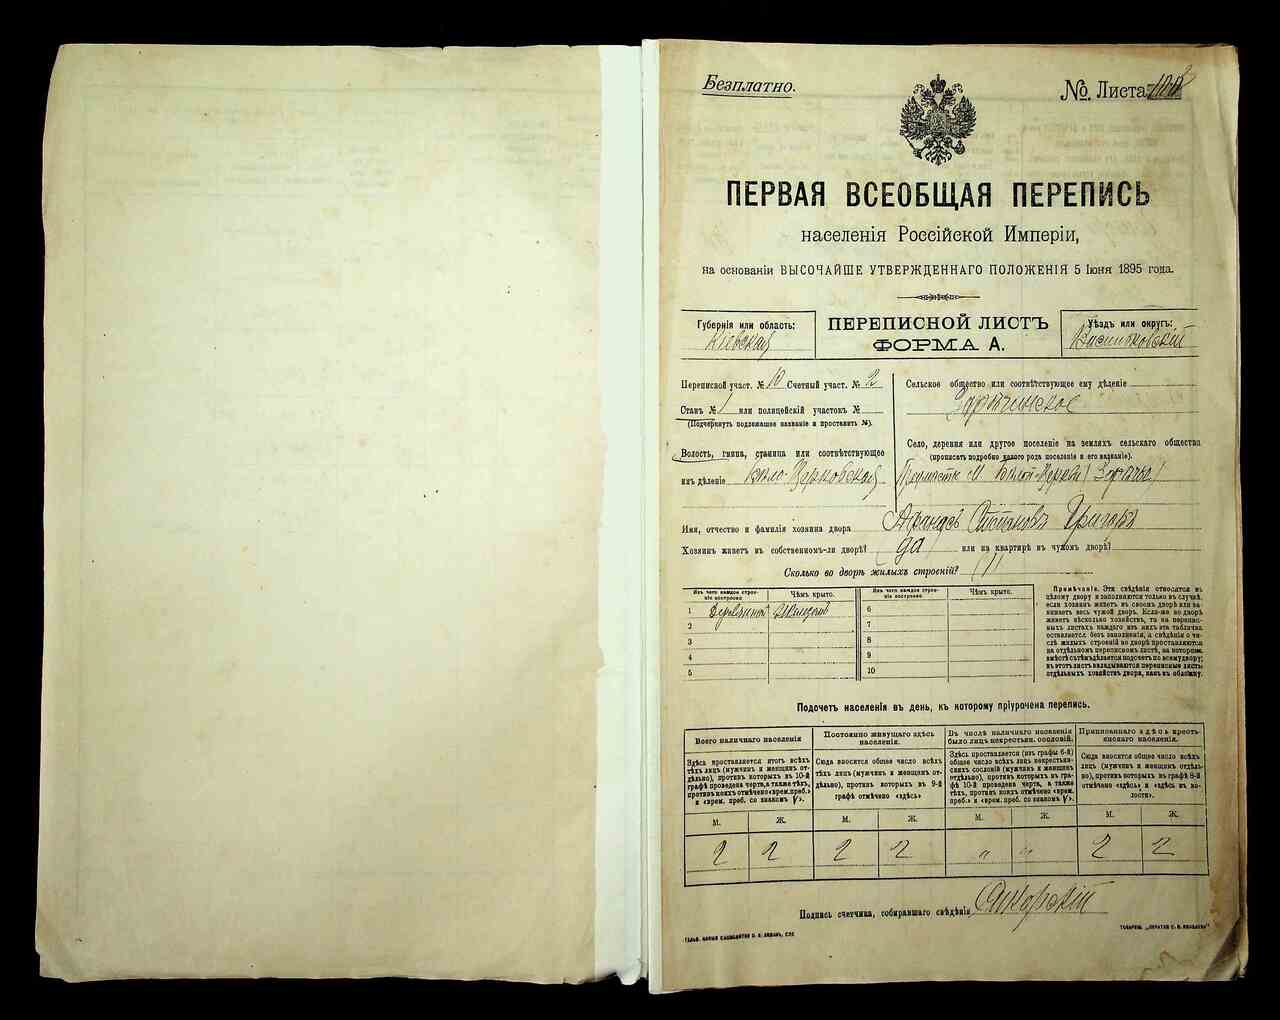 Безплатно.
№ Листа
ПЕРВАЯ ВСЕОБЩАЯ ПЕРЕПИСЬ
населенія Россійской Имперіи,
на основаніи ВЫСОЧАЙШЕ УТВЕРЖДЕННАГО ПОЛОЖЕНІЯ 5 Іюня 1895 года.
Губернія или область:
Кіевская
ПЕРЕПИСНОЙ ЛИСТЪ
ФОРМА А.
Уѣздъ или округъ:
Васильковскій
Переписной участ. № 10 Счетный участ. № 2
Станъ № 1 или полицейскій участокъ №
(Подчеркнуть подлежащее названіе и проставить №).
Волость, гмина, станица или соотвѣтствующее
имъ дѣленіе Бѣло-Церковская
Сельское общество или соотвѣтствующее ему дѣленіе
Зарѣчанское
Село, деревня или другое поселеніе на земляхъ сельскаго общества
(прописать подробно какого рода поселеніе и его названіе).
М. Бѣлой-Церкви (Зарѣчье)
Имя, отчество и фамилія хозяина двора
Хозяинъ живетъ въ собственномъ-ли дворѣ? (да) или на квартирѣ въ чужомъ дворѣ?
Сколько во дворѣ жилыхъ строеній? (1)
Изъ чего каждое строеніе построено
Чѣмъ крыто.
1
2
3
4
5
Изъ чего каждое строеніе построено
Чѣмъ крыто.
6
7
8
9
10
Примѣчаніе. Эти свѣдѣнія относятся къ
цѣлому двору и заполняются только въ случаѣ,
если хозяинъ живетъ въ своемъ дворѣ или занимаетъ
весь чужой дворъ. Если-же во дворѣ
живетъ нѣсколько хозяйствъ, то на переписныхъ
листахъ каждаго изъ нихъ эта табличка
оставляется безъ заполненія, а свѣдѣнія о числѣ
жилыхъ строеній во дворѣ проставляются
на отдѣльномъ переписномъ листѣ, на которомъ
вмѣстѣ съ тѣмъ дѣлается подсчетъ по всему двору;
въ этотъ листъ вкладываются переписные листы
отдѣльныхъ хозяйствъ двора, какъ въ обложку.
Подсчетъ населенія въ день, къ которому пріурочена перепись.
Всего наличнаго населенія
Здѣсь проставляется итогъ всѣхъ
тѣхъ лицъ (мужчинъ и женщинъ отдѣльно),
противъ которыхъ въ 10-й
графѣ проведена черта, а также тѣхъ,
противъ коихъ отмѣчено «врем. преб.»
и «врем. преб. со знакомъ V».
Постоянно живущаго здѣсь
населенія.
Сюда вносится общее число всѣхъ
тѣхъ лицъ (мужчинъ и женщинъ отдѣльно),
противъ которыхъ въ 9-й
графѣ отмѣчено «здѣсь»
Въ числѣ наличнаго населенія
было лицъ некрестьян. сословій.
Здѣсь проставляется (изъ графы 6-й)
общее число всѣхъ лицъ некрестьянскихъ
сословій (мужчинъ и женщинъ
отдѣльно), противъ которыхъ въ графѣ
10-й проведена черта, а также
тѣхъ, противъ коихъ отмѣчено «врем.
преб.» и «врем. преб. со знакомъ V».
Приписаннаго здѣсь крестьянскаго
населенія.
Сюда вносится общее число всѣхъ
лицъ (мужчинъ и женщинъ отдѣльно),
противъ которыхъ въ графѣ 8-й
отмѣчено «здѣсь» и «здѣсь въ волости».
М. Ж. М. Ж. М. Ж. М. Ж.
2 2 2 2 „ „ 2 2
Подпись счетчика, собиравшаго свѣдѣнія